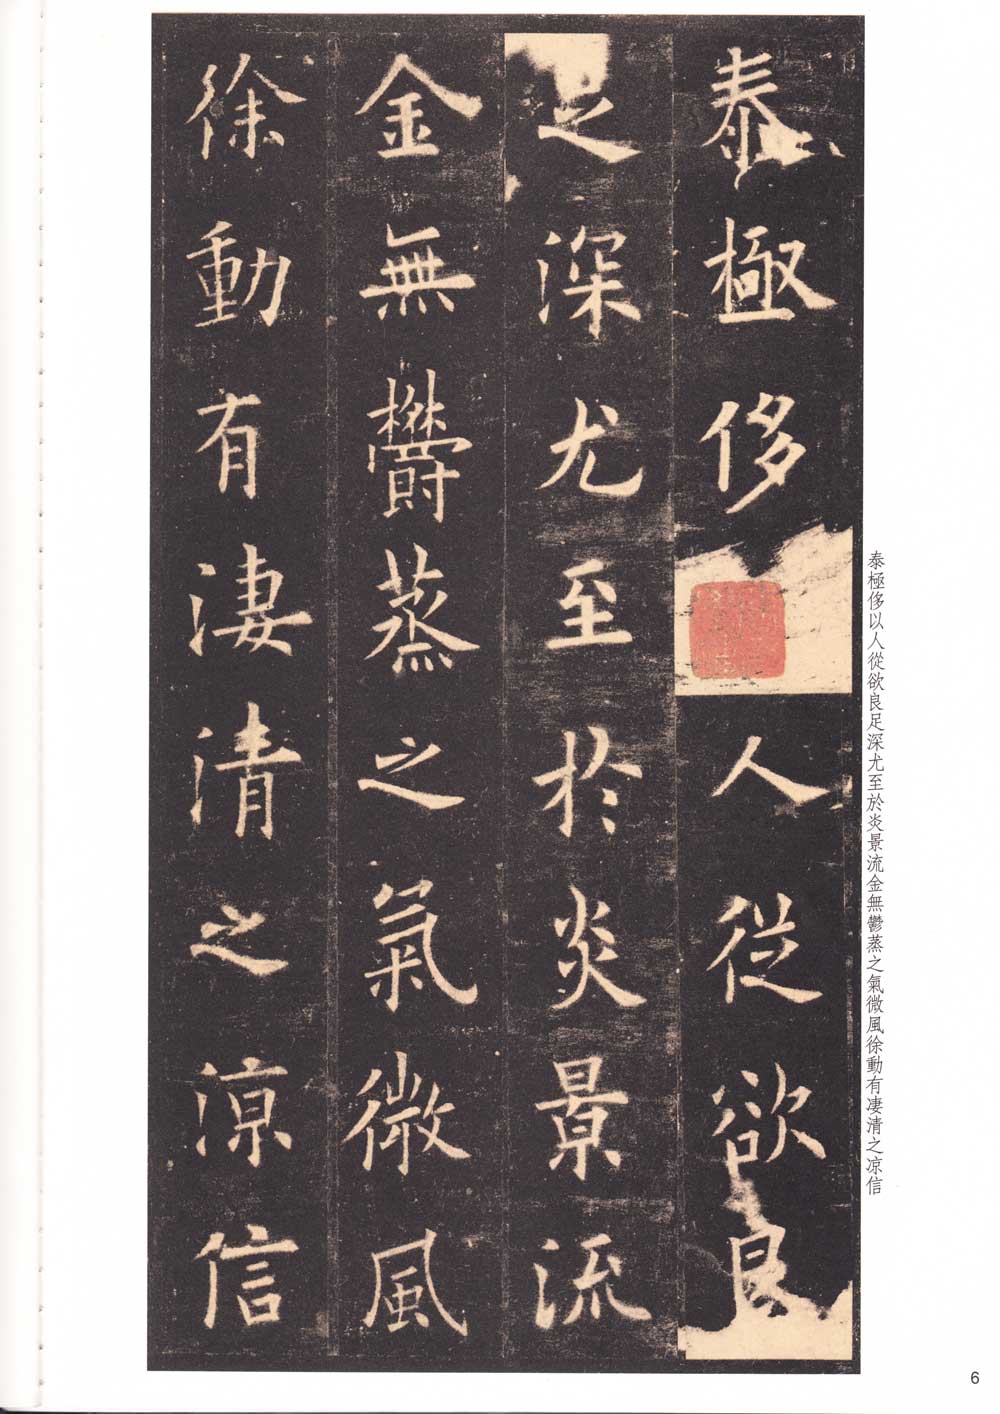 泰極侈人從欲良
足深尤至於炎景流
金無鬱蒸之氣微風
徐動有淒清之涼信
泰極侈以人從欲良足深尤至於炎景流金無鬱蒸之氣微風徐動有凄清之凉信
6